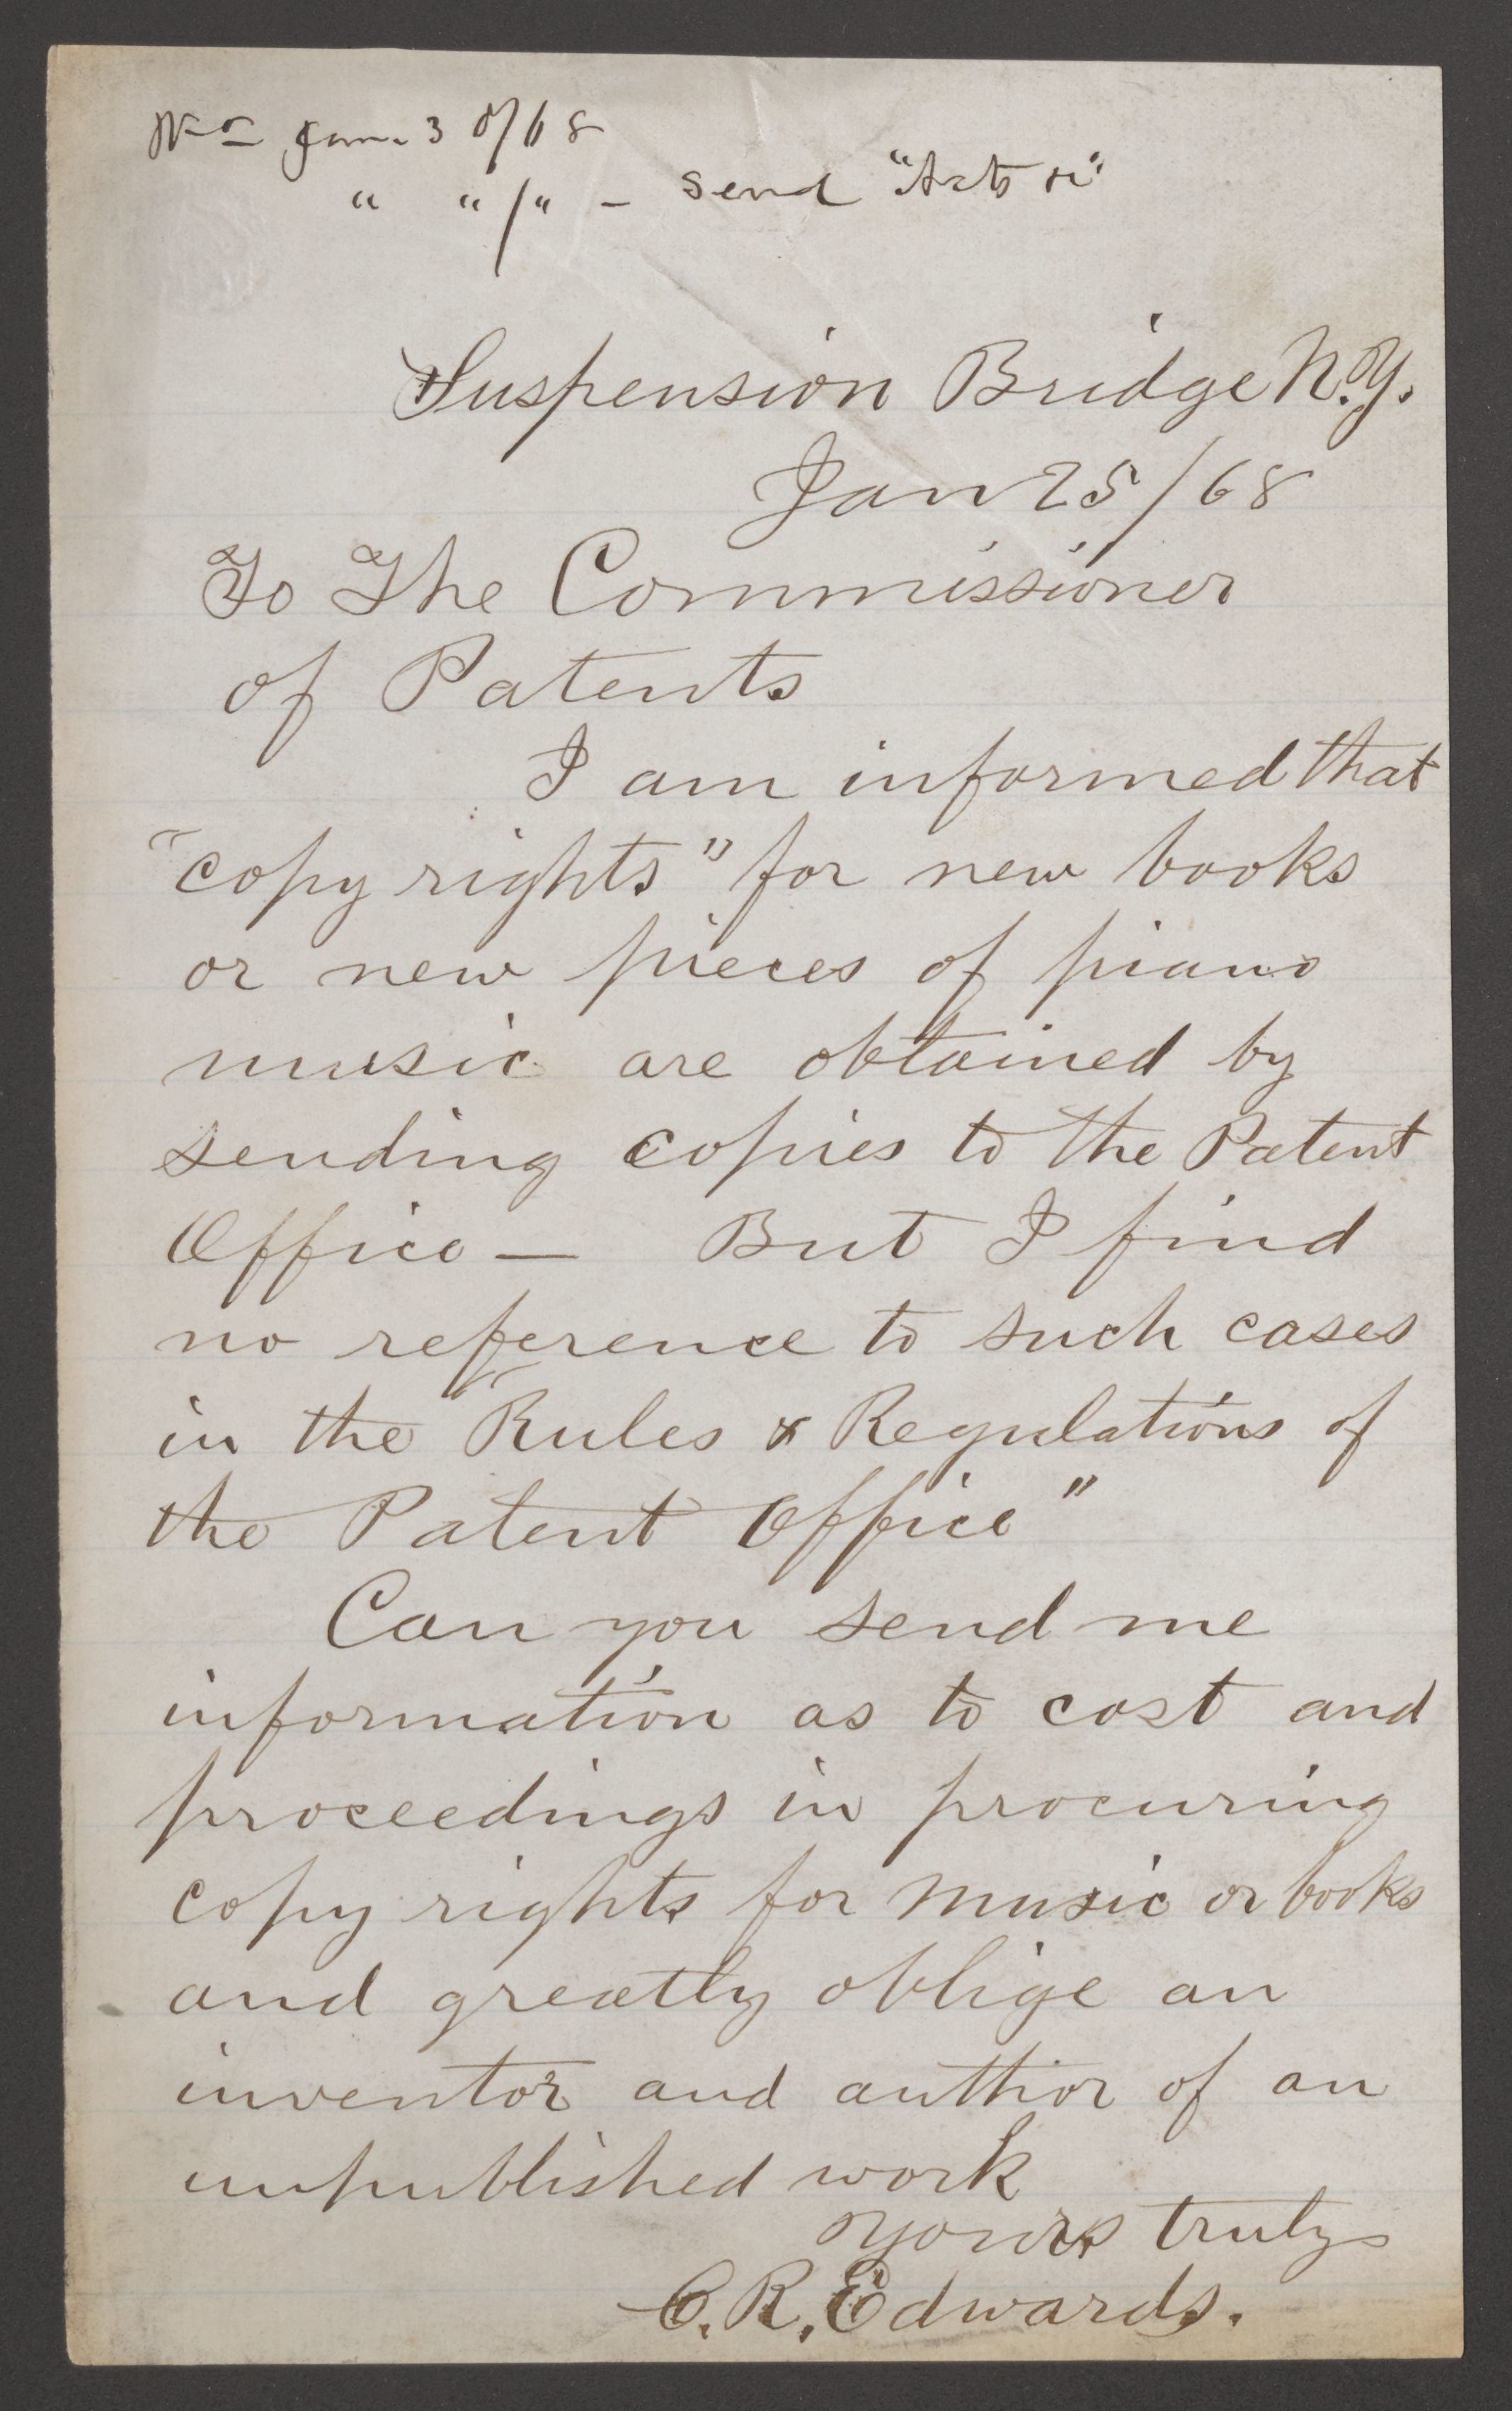 Jan. 3 0/68
" " /" - send "Acts &c"
Suspension Bridge N.Y.
Jan 25/68
To The Commissioner
of Patents
I am informed that
"copy rights" for new books
or new pieces of piano
music are obtained by
sending copies to the Patent
Office — But I find
no reference to such cases
in the "Rules & Regulations of
the Patent Office"
Can you send me
information as to cost and
proceedings in procuring
copy rights for music or books
and greatly oblige an
inventor and author of an
unpublished work
Yours truly
C. R. Edwards.